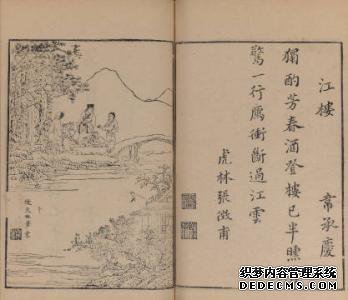 江樓 韋承慶
獨酌芳春酒登樓已半曛
驚一行鴈衝斷過江雲
虎林張澂甫
织梦内容管理系统
DEDECMS.COM